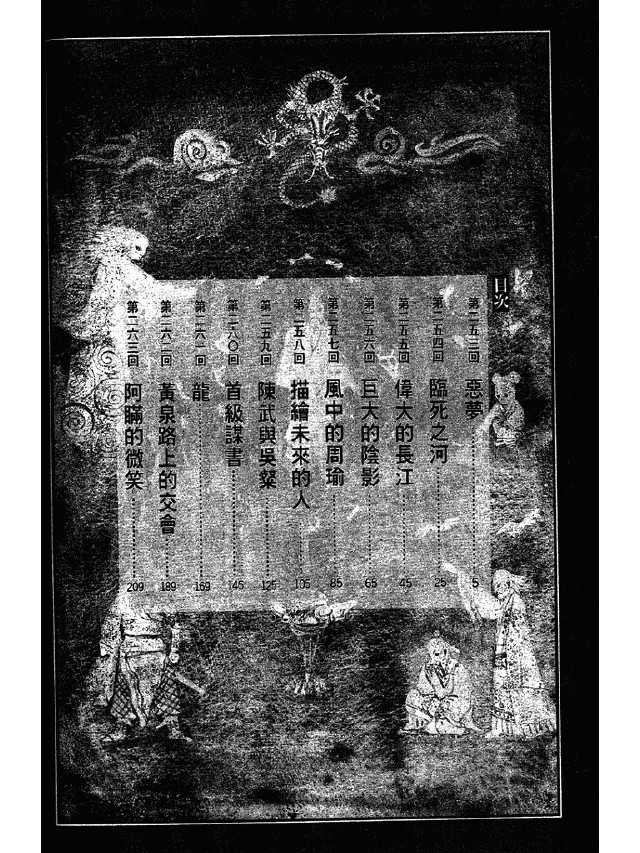 目次
第二五三回 惡夢 5
第二五四回 臨死之河 25
第二五五回 偉大的長江 45
第二五六回 巨大的陰影 65
第二五七回 風中的周瑜 85
第二五八回 描繪未來的人 105
第二五九回 陳武與吳粲 125
第二六〇回 首級謀書 145
第二六一回 龍 169
第二六二回 黃泉路上的交會 189
第二六三回 阿瞞的微笑 209